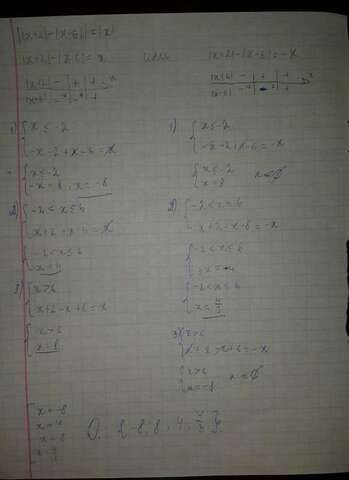 ||x+2|-|x-6||=|x|
|x+2|-|x-6|=x или |x+2|-|x-6|=-x
|x+2| - | + | + x
|x-6| - | - | +
|x+2| - | + | + x
|x-6| - | - | +
1) {x ≤ -2
{-x-2+x-6=x
{x ≤ -2
{-x=8, x=-8
2) {-2<x≤6
{x+2+x-6=x
{-2<x≤6
{x=4
3) {x>6
{x+2-x+6=x
{x>6
{x=8
1) {x≤-2
{-x-2+x-6=-x
{x≤-2
{x=8 x∈∅
2) {-2<x≤6
{x+2+x-6=-x
{-2<x≤6
{3x=4
{-2<x≤6
{x=4/3
3) {x>6
{x+2-x+6=-x
{x>6
{x=-8 x∈∅
[x=-8
x=4
x=8
x=4/3
О. {-8, 8, 4, 4/3}